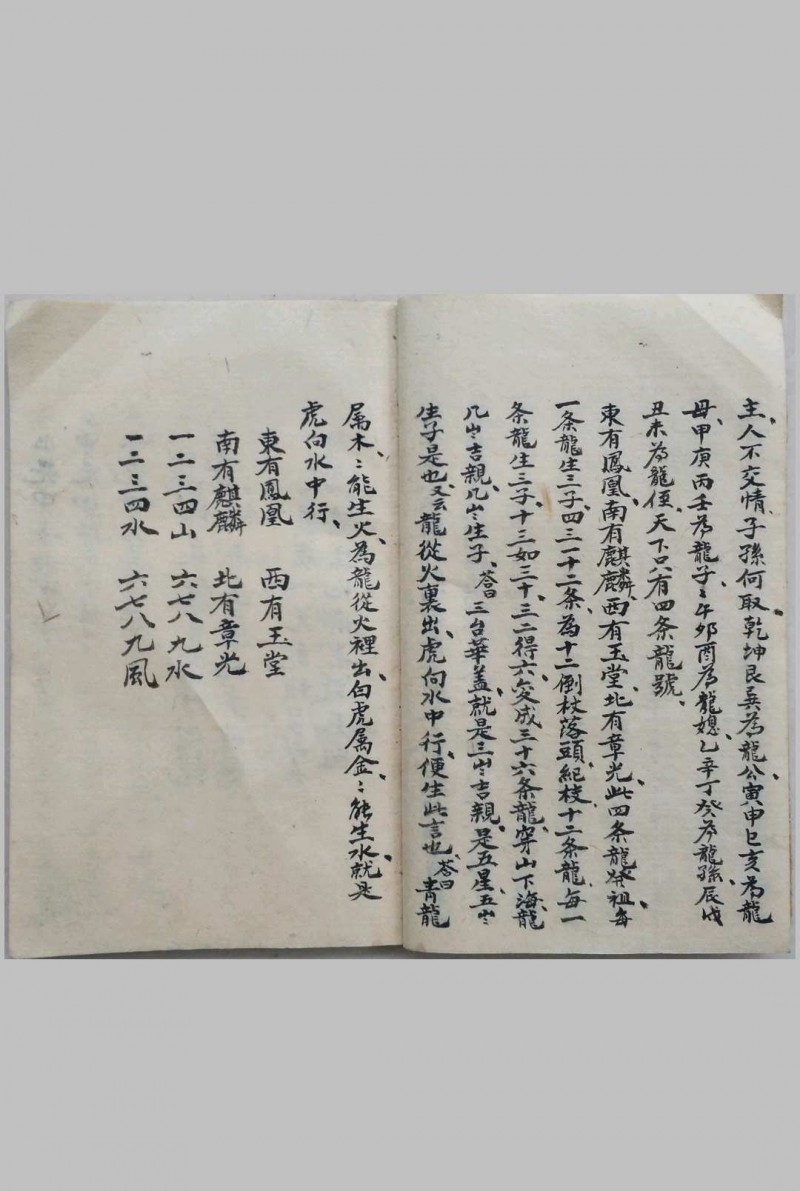 主人不交情、子孫何取、乾坤艮巽為龍公、寅申巳亥為龍
母、甲庚丙壬為龍子、子午卯酉為龍媳、乙辛丁癸為龍孫、辰戌
丑未為龍侄、天下只有四条龍號、
東有鳳凰、南有麒麟、西有玉堂、北有章光、此四条龍發祖、每
一条龍生三子、四三一十二条、為十二倒杖落頭、紀枝、十二条龍、每一
条龍生三子、十三如三十、三二得六、変成三十六条龍、穿山下海、龍
凡岁吉親、凡岁生子、答曰三台華盖、就是三岁吉親、是五星、五岁
生子是也、又云龍從火裏出、虎向水中行、便生此言也、答曰青龍
属木、〻能生火、為龍從火裡出、白虎属金、〻能生水、就是
虎向水中行、
東有鳳凰 西有玉堂
南有麒麟 北有章光
一二三四山 六七八九水
一二三四水 六七八九風